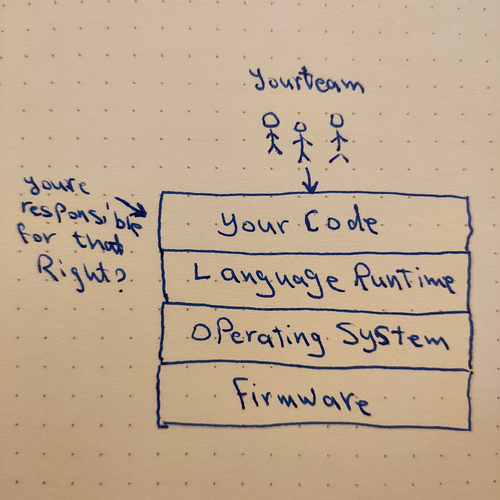 Yourteam
youre
responsible
for that
Right?
your Code
Language Runtime
Operating System
Firmware